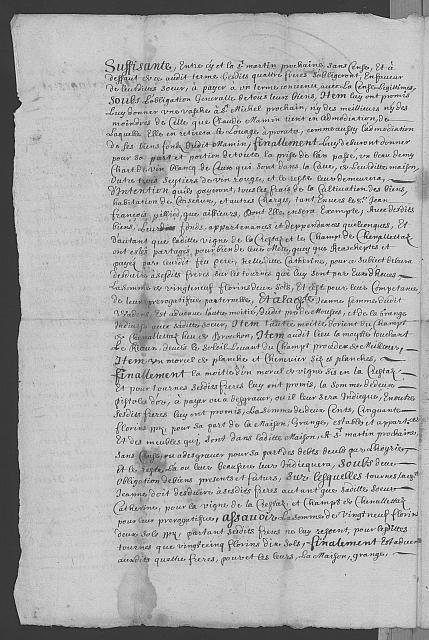 Suffisante, Entre cy et la St martin prochaine, sans Cense, Et à
deffaut de ce audit terme lesdits quattre freres s'obligeront, En faveur
de leurditte soeur, à payer a un terme convenu avec la Cense legittime,
Soubs l'obligation Generalle de tous leurs biens, Item luy ont promis
Luy donner une vache à St Michel prochain, n'y des meilleurs n'y des
moindres de celle que Claude Mamin tient en admodiation, de
Laquelle Elle en retirera le Louage à prorata, comme aussy l'admodiation
de ses biens fonds dudit Mamin, finallement Luy devront donner
pour sa part et portion de toute la prise de l'an passé, un beau demy
char de vin blanc, de Cuve qui sont dans la Cave, de leurditte maison,
Outre trois septiers de vin rouge, et le reste leur demeurera,
d'Intention quils payeront, tous les frais de la Cultivation des biens,
habitation de Conserüe, et autres charges, tant Envers le Sr Jean
françois pilliod, que ailleurs, dont Elle en sera Exempte, Avec desdits
biens, fonds, appartenances et deppendances quelconques, Et
d'autant que laditte vigne de la Crettaz et le Champ de Chenallettaz
ont estés partagés, pour bien de leur Mere, quoy que Reacheptés et
payés par leurdit feu pere, Icelle ditte Catherine, pour ce Subiect debvra
desduire à sesdits freres sur les tournes que luy sont par Eux dheues
La somme de vingt neuf florins deux sols, Et c'est pour leur Competance
de leur prerogatifve paternelles, Et à la dite Jeanne femme dudit
Vadens, Est advenue l'autre moitié, dudit pré de Mousses, et de la Grange
Indivise avec saditte soeur, Item l'autre moitié d'orient du Champt
de Chenallettaz lieu de Brochon, Item audit lieu la moytié touchant
Le Rieux, devers le Soleil Levant du Champt procedé de Mulliener,
Item un morcel de planche et Chenevier Six et planches,
finallement la moitié d'un morcel de vigne sis en la Crettaz
Et pour tournes sesdits freres luy ont promis, la Somme de deux
pistoles d'or, à payer ou à desgrever, ou il leur sera Indiqué, En outre
sesdits freres luy ont promis, La somme de deux Cents, Cinquante
florins ppx. pour sa part de la Maison, Grange, estables et appartces
Et des meubles qui, sont dans laditte Maison, à St martin prochaine,
sans Cense, ou à desgrever pour sa part des debts
Et le reste la ou leur beaufrere leur Indiquera, Soubs deue
Obligation de biens presents et futurs, Sur lesquelles tournes laditte
Jeanne doit desduire à sesdits freres autant que saditte Soeur
Catherine, pour la vigne de la Crettaz, et Champs de Chenallettaz
pour leur prerogatifve, assavoir la somme de vingt neuf florins
deux sols ppx. partant sesdits freres ne luy restent, pour lesdittes
tournes que vingt cinq florins dix sols, finalement Est advenu
ausdits quattre freres, pour et les leurs, La Maison, grange,